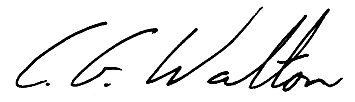 C. G. Walton